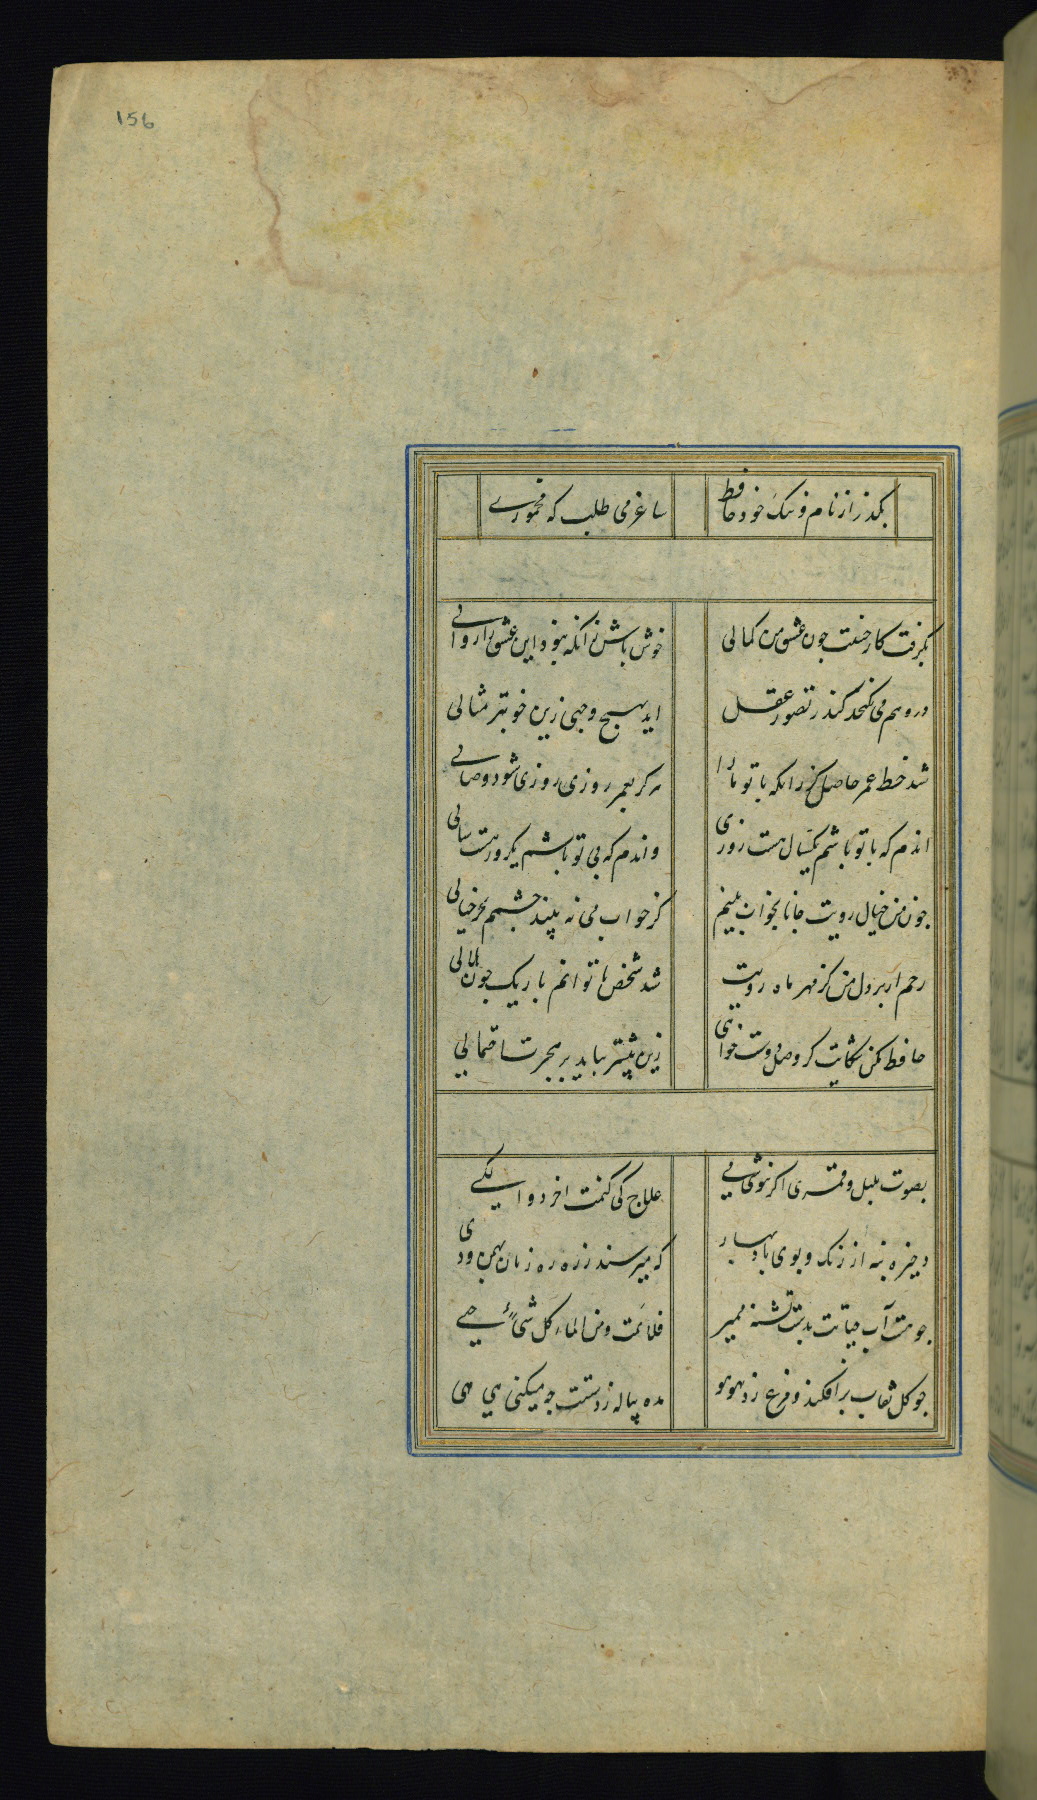 156
بگذر از نام و ننگ خود حافظ ساغر می طلب که مخموری
بگرفت کار حسنت چون عشق من کمالی خوش باش زانکه نبود این عشق را زوالی
در وهم می نگنجد کندر تصور عقل اید بهیچ وجهی زین خوبتر مثالی
شد خط عمر حاصل کر زانکه با تو ما را هرگز بعمر روزی روزی شود وصالی
اندم که با تو باشم یکسال هست روزی واندم که بی تو باشم یکروز هست سالی
چون من خیال رویت جانا بخواب بینم کز خواب می نه بیند چشمم بجز خیالی
رحم ار بر دل من کز مهر ماه رویت شد شخص ناتوانم باریک چون هلالی
حافظ مکن شکایت کر وصل دوست خواهی زین بیشتر بباید بر هجرت احتمالی
بصوت بلبل و قمری اکر ننوشی می علاج کی کنمت اخر دوا الکی
ذخیره بنه از رنک و بوی باد بهار که میرسند ز ره رهزنان بهمن و دی
چو هست آب حیاتت بدست تشنه ممیر فلا تمت و من الماء کل شیٔ حی
چو کل نقاب برافکند و مرغ زد هوهو مده پیاله ز دستت چه میکنی هی هی